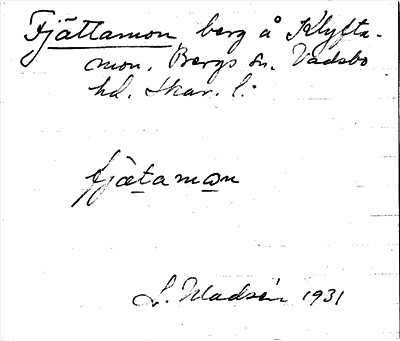 Fjättamon berg å Klyfta-
mon. Bergs sn. Vadsbo
hd. Skar. l:
fjætamon
L. Madsén 1931